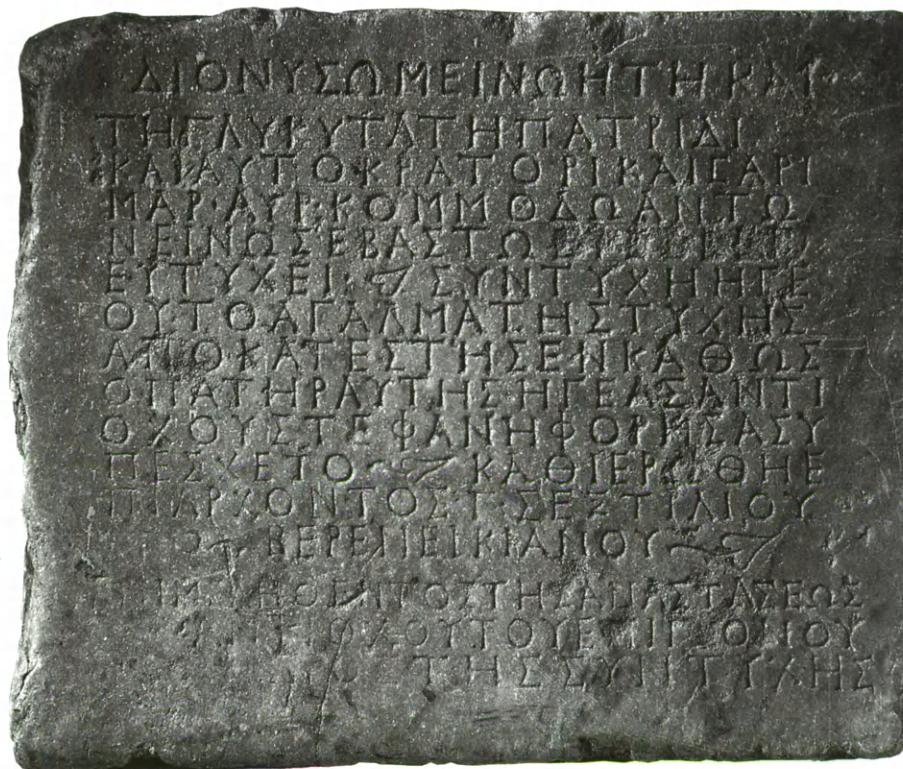 ΔΙΟΝΥΣΩΜΕΙΝΩΗΤΗΚΑΙ
ΤΗΓΛΥΚΥΤΑΤΗΠΑΤΡΙΔΙ
ΚΑΙΑΥΤΟΚΡΑΤΟΡΙΚΑΙΣΑΡΙ
ΜΑΡ·ΑΥΡ·ΚΟΜΜΟΔΩΑΝΤΩ
ΝΕΙΝΩΣΕΒΑΣΤΩ
ΕΥΤΥΧΕΙ ΣΥΝΤΥΧΗΗΓΕ
ΟΥΤΟΑΓΑΛΜΑΤΗΣΤΥΧΗΣ
ΑΠΟΚΑΤΕΣΤΗΣΕΝΚΑΘΩΣ
ΟΠΑΤΗΡΑΥΤΗΣΗΓΕΑΣΑΝΤΙ
ΟΧΟΥΣΤΕΦΑΝΗΦΟΡΗΣΑΣΥ
ΠΕΣΧΕΤΟ ΚΑΘΙΕΡΩΘΗΕ
ΠΙΑΡΧΟΝΤΟΣ·Γ·ΣΕΣΤΙΛΙΟΥ
ΒΕΡΕΝΕΙΚΙΑΝΟΥ
ΙΜΕΛΗΘΕΝΤΟΣΤΗΣΑΝΑΣΤΑΣΕΩΣ
ΙΟΧΟΥΤΟΥΕΠΙΓΟΝΟΥ
ΤΗΣΣΥΝΤΥΧΗΣ